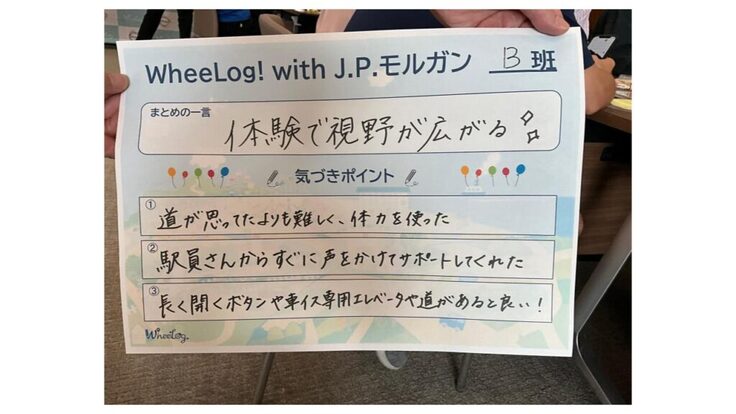 WheeLog! with J.P.モルガン B 班
まとめの一言
体験で視野が広がる
気づきポイント
① 道が思ってたよりも難しく、体力を使った
② 駅員さんからすぐに声をかけてサポートしてくれた
③ 長く開くボタンや車イス専用エレベータや道があると良い！
WheeLog!